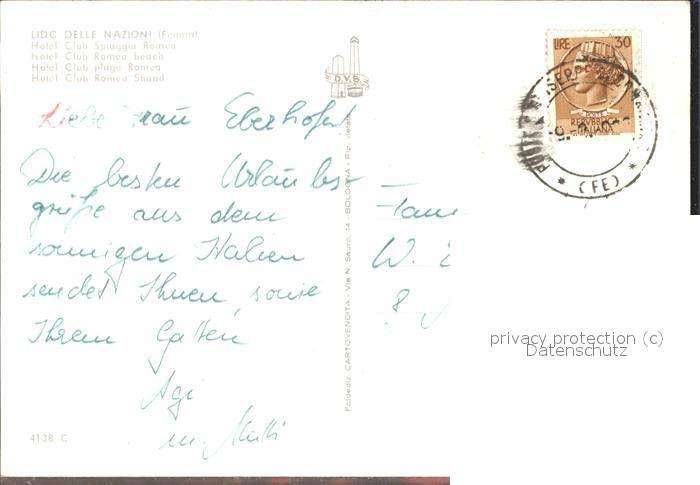 LIDO DELLE NAZIONI (Ferrara)
Hotel Club Spiaggia Romea
Hotel Club Romea beach
Hotel Club plage Romea
Hotel Club Romea Strand
D.V.B.
LIRE 30
POSTE
REPUBBLICA
ITALIANA
* (FE) *
Liebe Frau Eberhofer
Die besten Urlaubs-
grüße aus dem
sonnigen Italien
sendet Ihnen, sowie
Ihrem Gatten,
Agi
u.
Fotoediz. CARTOVENDITA - Via N. Sauro, 14 - BOLOGNA - Rip. Vietata
Fam
W.
8
privacy protection (c)
Datenschutz
4138 C